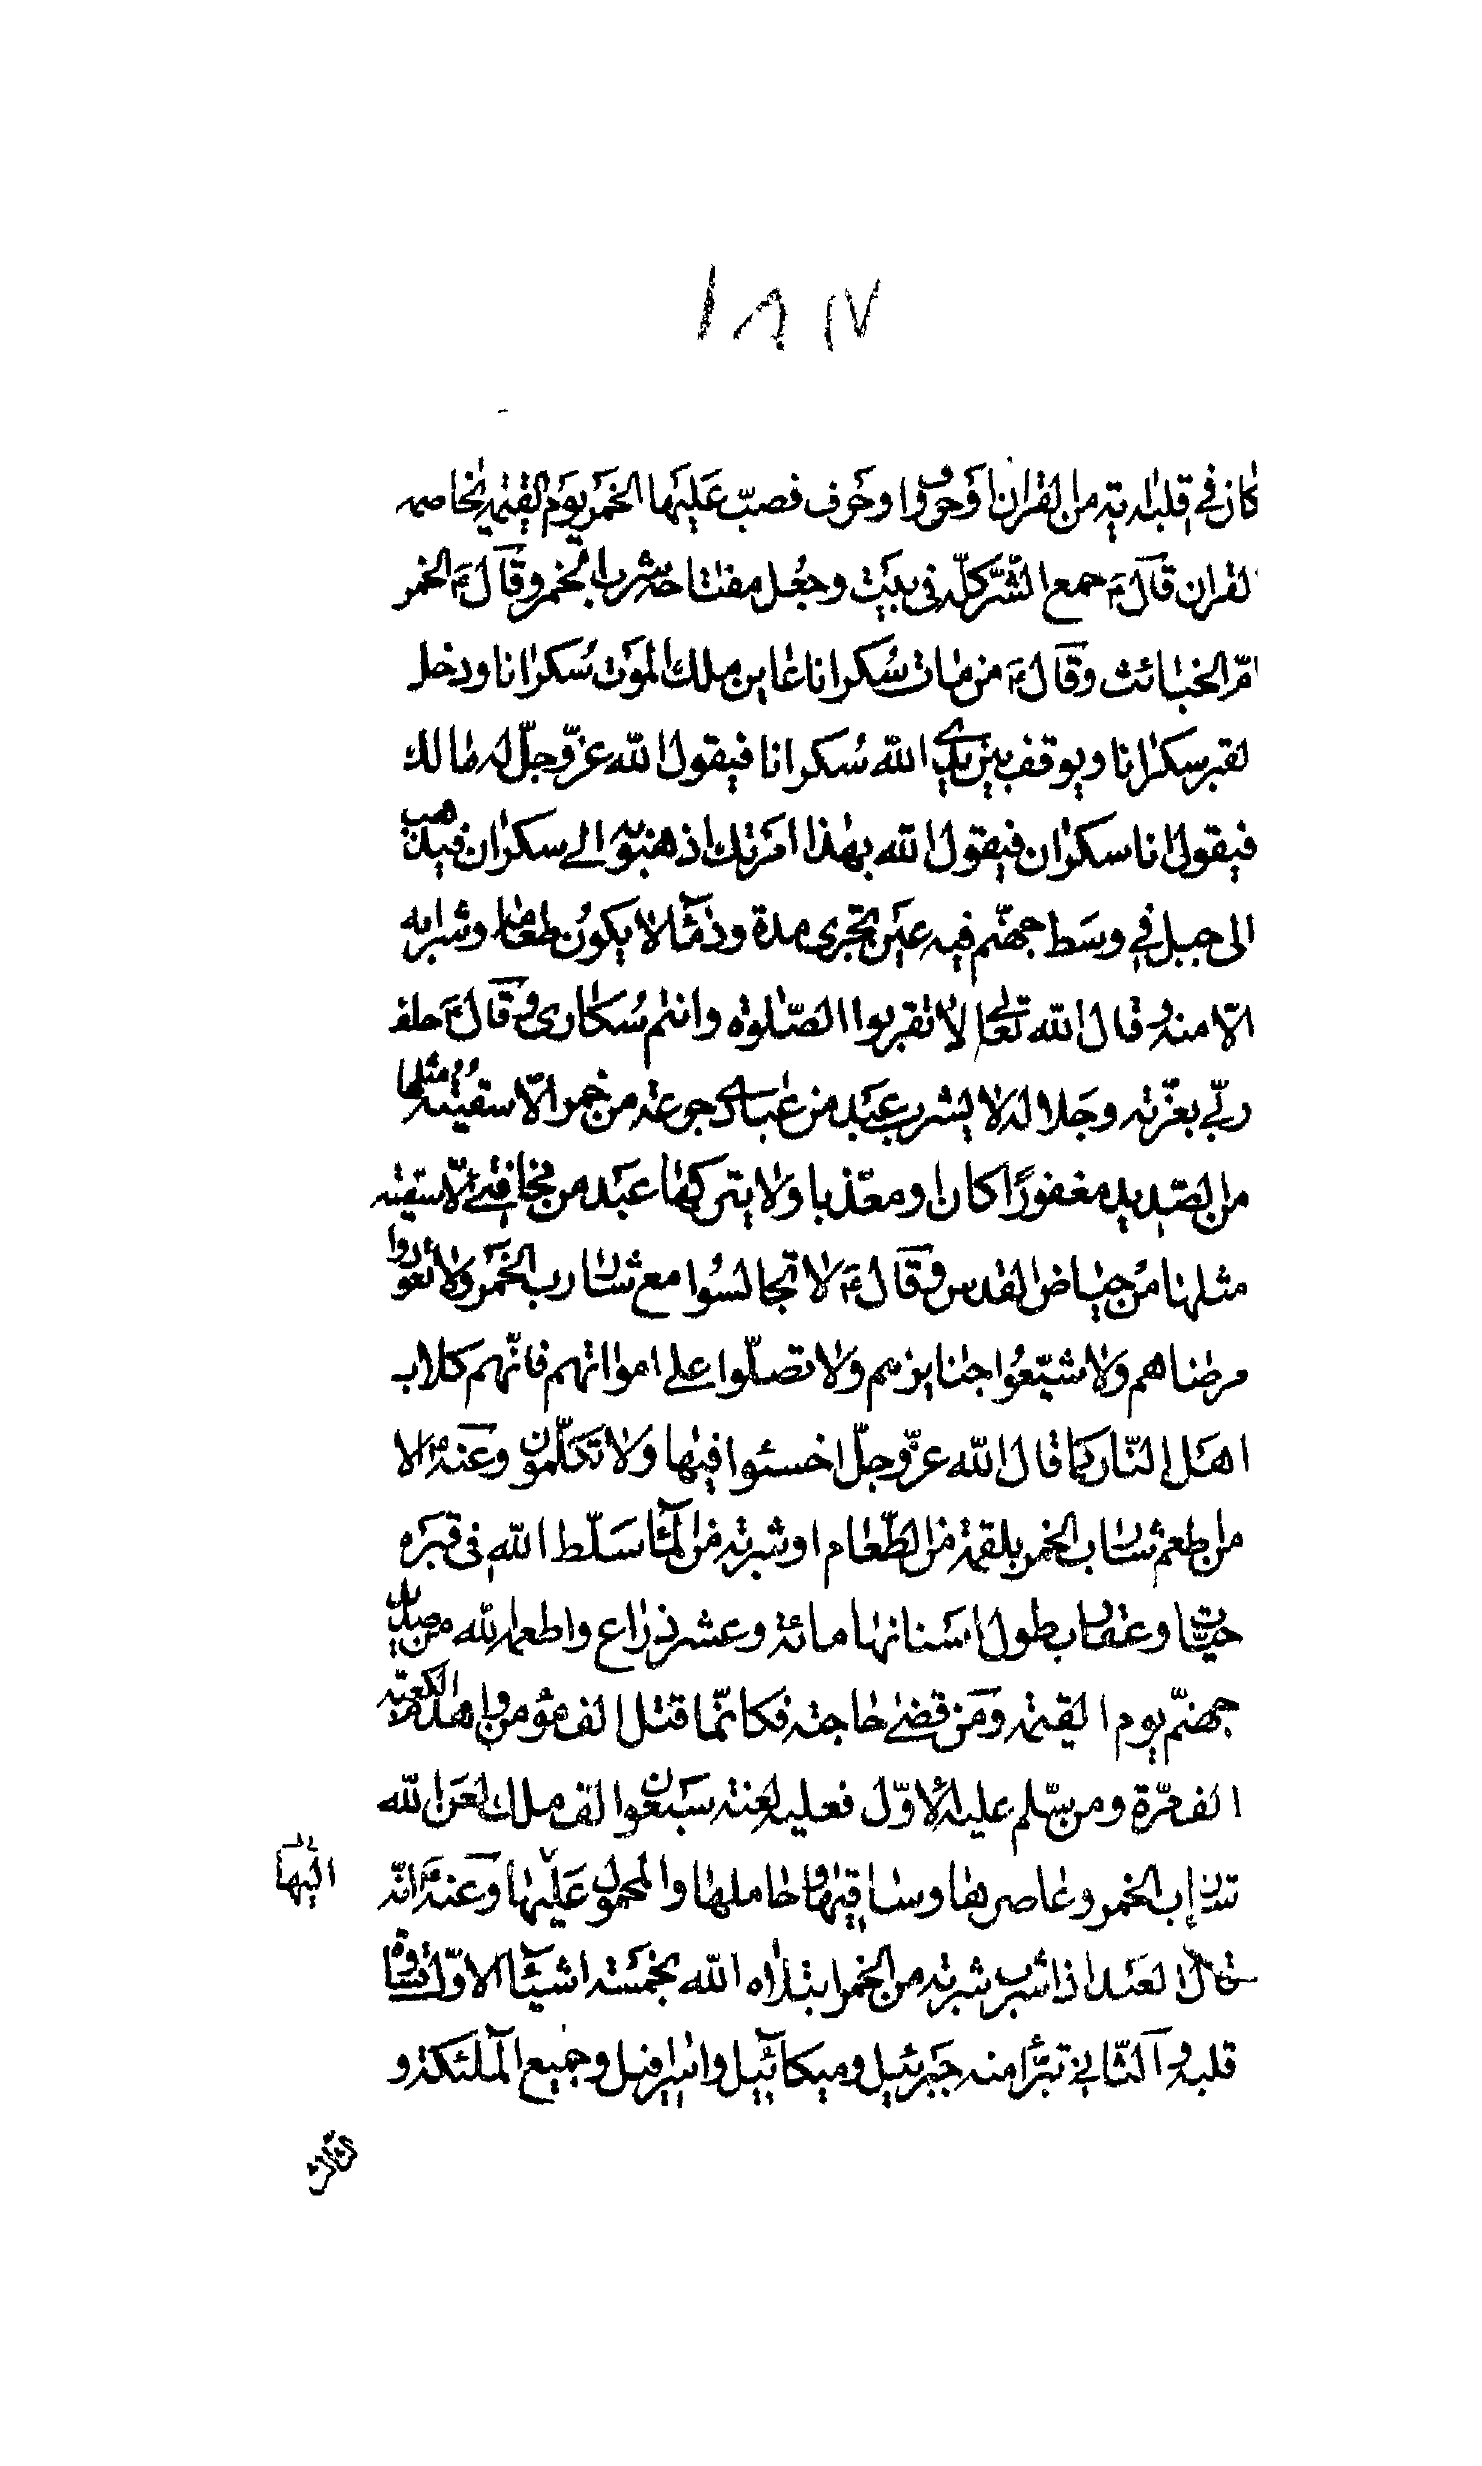 كان في قلبه اية من القران او حروفا وحرف فصبّ عَليَها الخمَر يوَم القيٰمة يخاصمه
القران قال ع جمع الشّر كلّه فى بيَت وجُعل مفتاحه شرب الخمر وقال ع الخمر
امّ الخبائث وقال ع من مات سُكرانا عاين ملك الموَت سُكرانا ودخل
القبر سكرانا ويوقف بين يدي الله سُكرانا فيقول الله عزّ وجلّ له ما لك
فيقول انا سكران فيقول الله بهذا امَرتك اذهبوا به الى سكران فيذهب
الى جبل في وسَط جهنّم فيه عيَن تجرى مدة ودمًا لا يكوُن طعامه وشرابه
الّا منه وقال الله تعالى لا تقربوا الصّلوة وانتم سُكارى وقال ع حلف
ربّي بعزّته وجَلاله لا يشرب عبَد من عبادى جرعة من خمر الّا سقيتُه مثلها
من الصّديد مغفورًا كان او معذّبا ولا يتركها عبَد من مخافتى الّا سقيته
مثلها من حياض القدس وقال ع لا تجالسُوا مع شارب الخمَر ولا تعودوا
مرضاهم ولا تشيّعوُا جنايزهم ولا تصلّوا على امواتهم فانّهم كلاب
اهَل النّار كما قال الله عزّ وجلّ اخسئوا فيها ولا تكلّمون وعَنه ع الا
من طعم شارب الخمر بلقمة من الطّعام او شربة من المآء سَلّط الله فى قبَره
حيّات وعقارب طول اسَنانها مائة وعشر ذراع واطعمه الله من صديد
جهنّم يوم القيٰمة ومَن قضى حاجته فكانّما قتل الف مؤمن او هدم الكعبة
الف مرّة ومن سّلم عليه الاوّل فعليه لعنة سبَعون الف ملك لعَن الله
شارب الخمر وعاصرها وساقيها وحاملها والمحمول عَليَها وعَنه ع انّه
اليها
قال العبَد اذا شرب شربة من الخمر ابتلاه الله بخمسَة اشيآء الاوّل قساوة
قلبه والثّانى تبرّأ منه جبَرئيل وميكآئيل واسرافيل وجميع الملٓئكة و